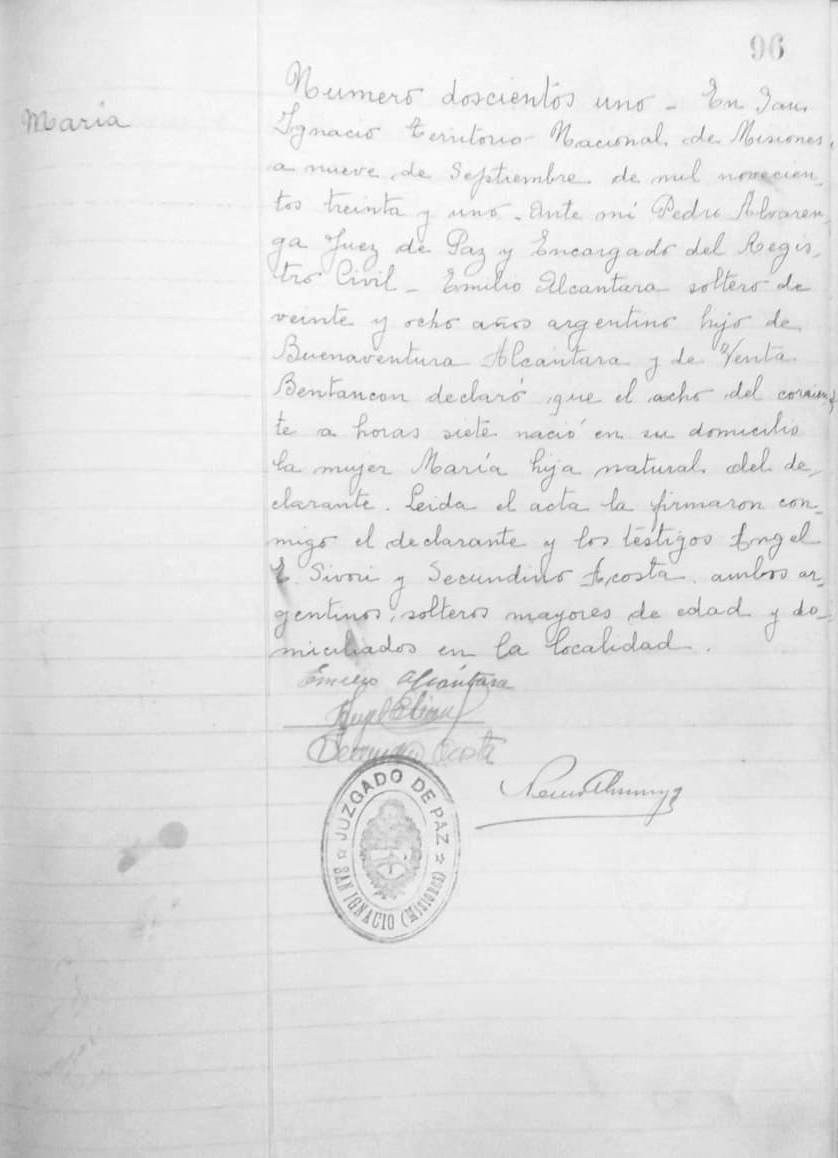 96
María
Numero doscientos uno - En San
Ignacio Territorio Nacional de Misiones,
a nueve de Septiembre de mil novecien-
tos treinta y uno. Ante mi Pedro Alvaren-
ga Juez de Paz y Encargado del Regis-
tro Civil - Emilio Alcantara soltero de
veinte y ocho años argentino hijo de
Buenaventura Alcántara y de Venta
Bentancon declaró que el ocho del corrien-
te a horas siete nació en su domicilio
la mujer María hija natural del de-
clarante. Leida el acta la firmaron con-
migo el declarante y los testigos Angel
E. Sivori y Secundino Acosta ambos ar-
gentinos, solteros mayores de edad y do-
miciliados en la localidad.
Emilio Alcántara
Angel E Sivori
Secundino Acosta
JUZGADO DE PAZ
SAN IGNACIO (MISIONES)